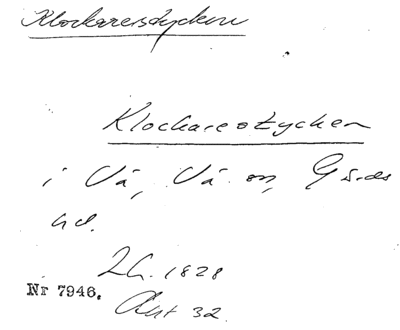 Klockarestycken
Klockarestycken
i Vå, Vå sn, Gärds
hd.
Lh. 1828
Nr 7946.
Akt 32.